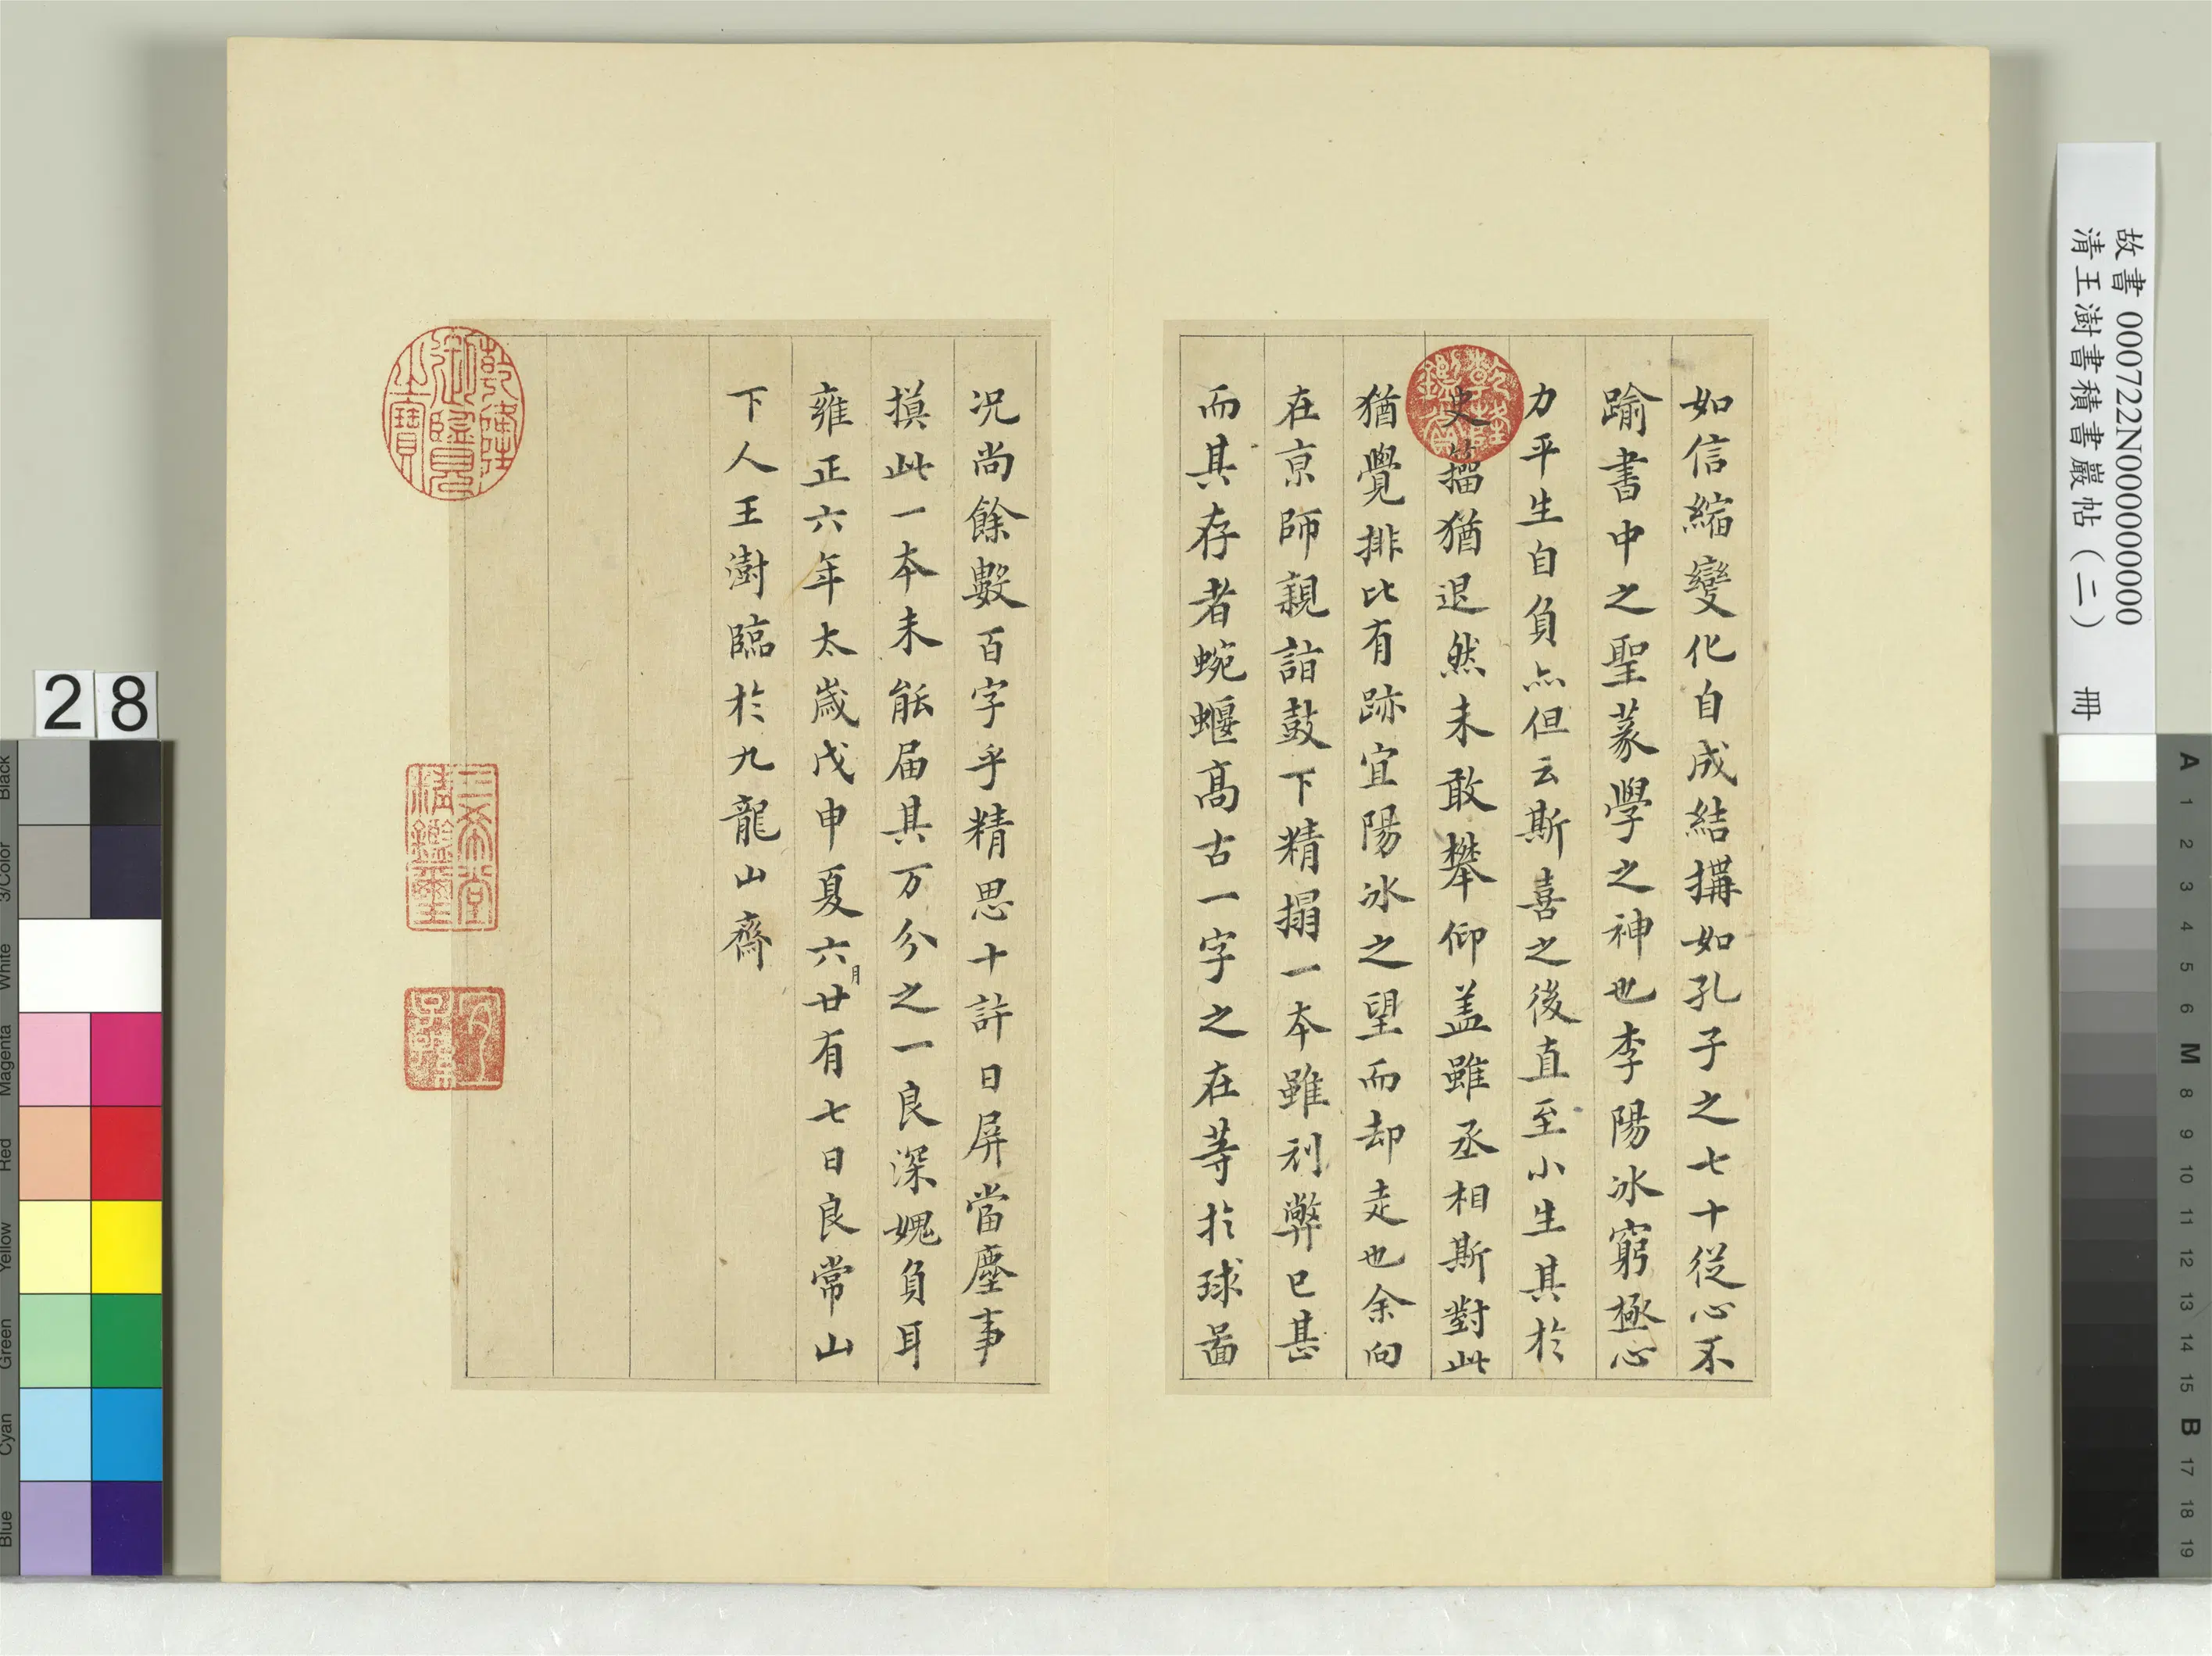 如信縮變化自成結搆如孔子之七十從心不
踰書中之聖篆學之神也李陽冰窮極心
力平生自負亦但云斯喜之後直至小生其於
史籀猶退然未敢攀仰盖雖丞相斯對此
猶覺排比有跡宜陽冰之望而却走也余向
在京師親詣鼓下精搨一本雖刓弊已甚
而其存者蜿蝘高古一字之在等於球啚
况尚餘數百字乎精思十許日屏當塵事
摸此一本未能届其万分之一良深媿負耳
雍正六年太歲戊申夏六月廿有七日良常山
下人王澍臨於九龍山齋
乾隆鑑賞
乾隆御覽之寶
三希堂精鑑璽
宜子孫
故書 000722N000000000
清王澍書積書巖帖(二) 冊
28
Black
3/Color
White
Magenta
Red
Yellow
Green
Cyan
Blue
A
1
2
3
4
5
6
M
8
9
10
11
12
13
14
15
B
17
18
19